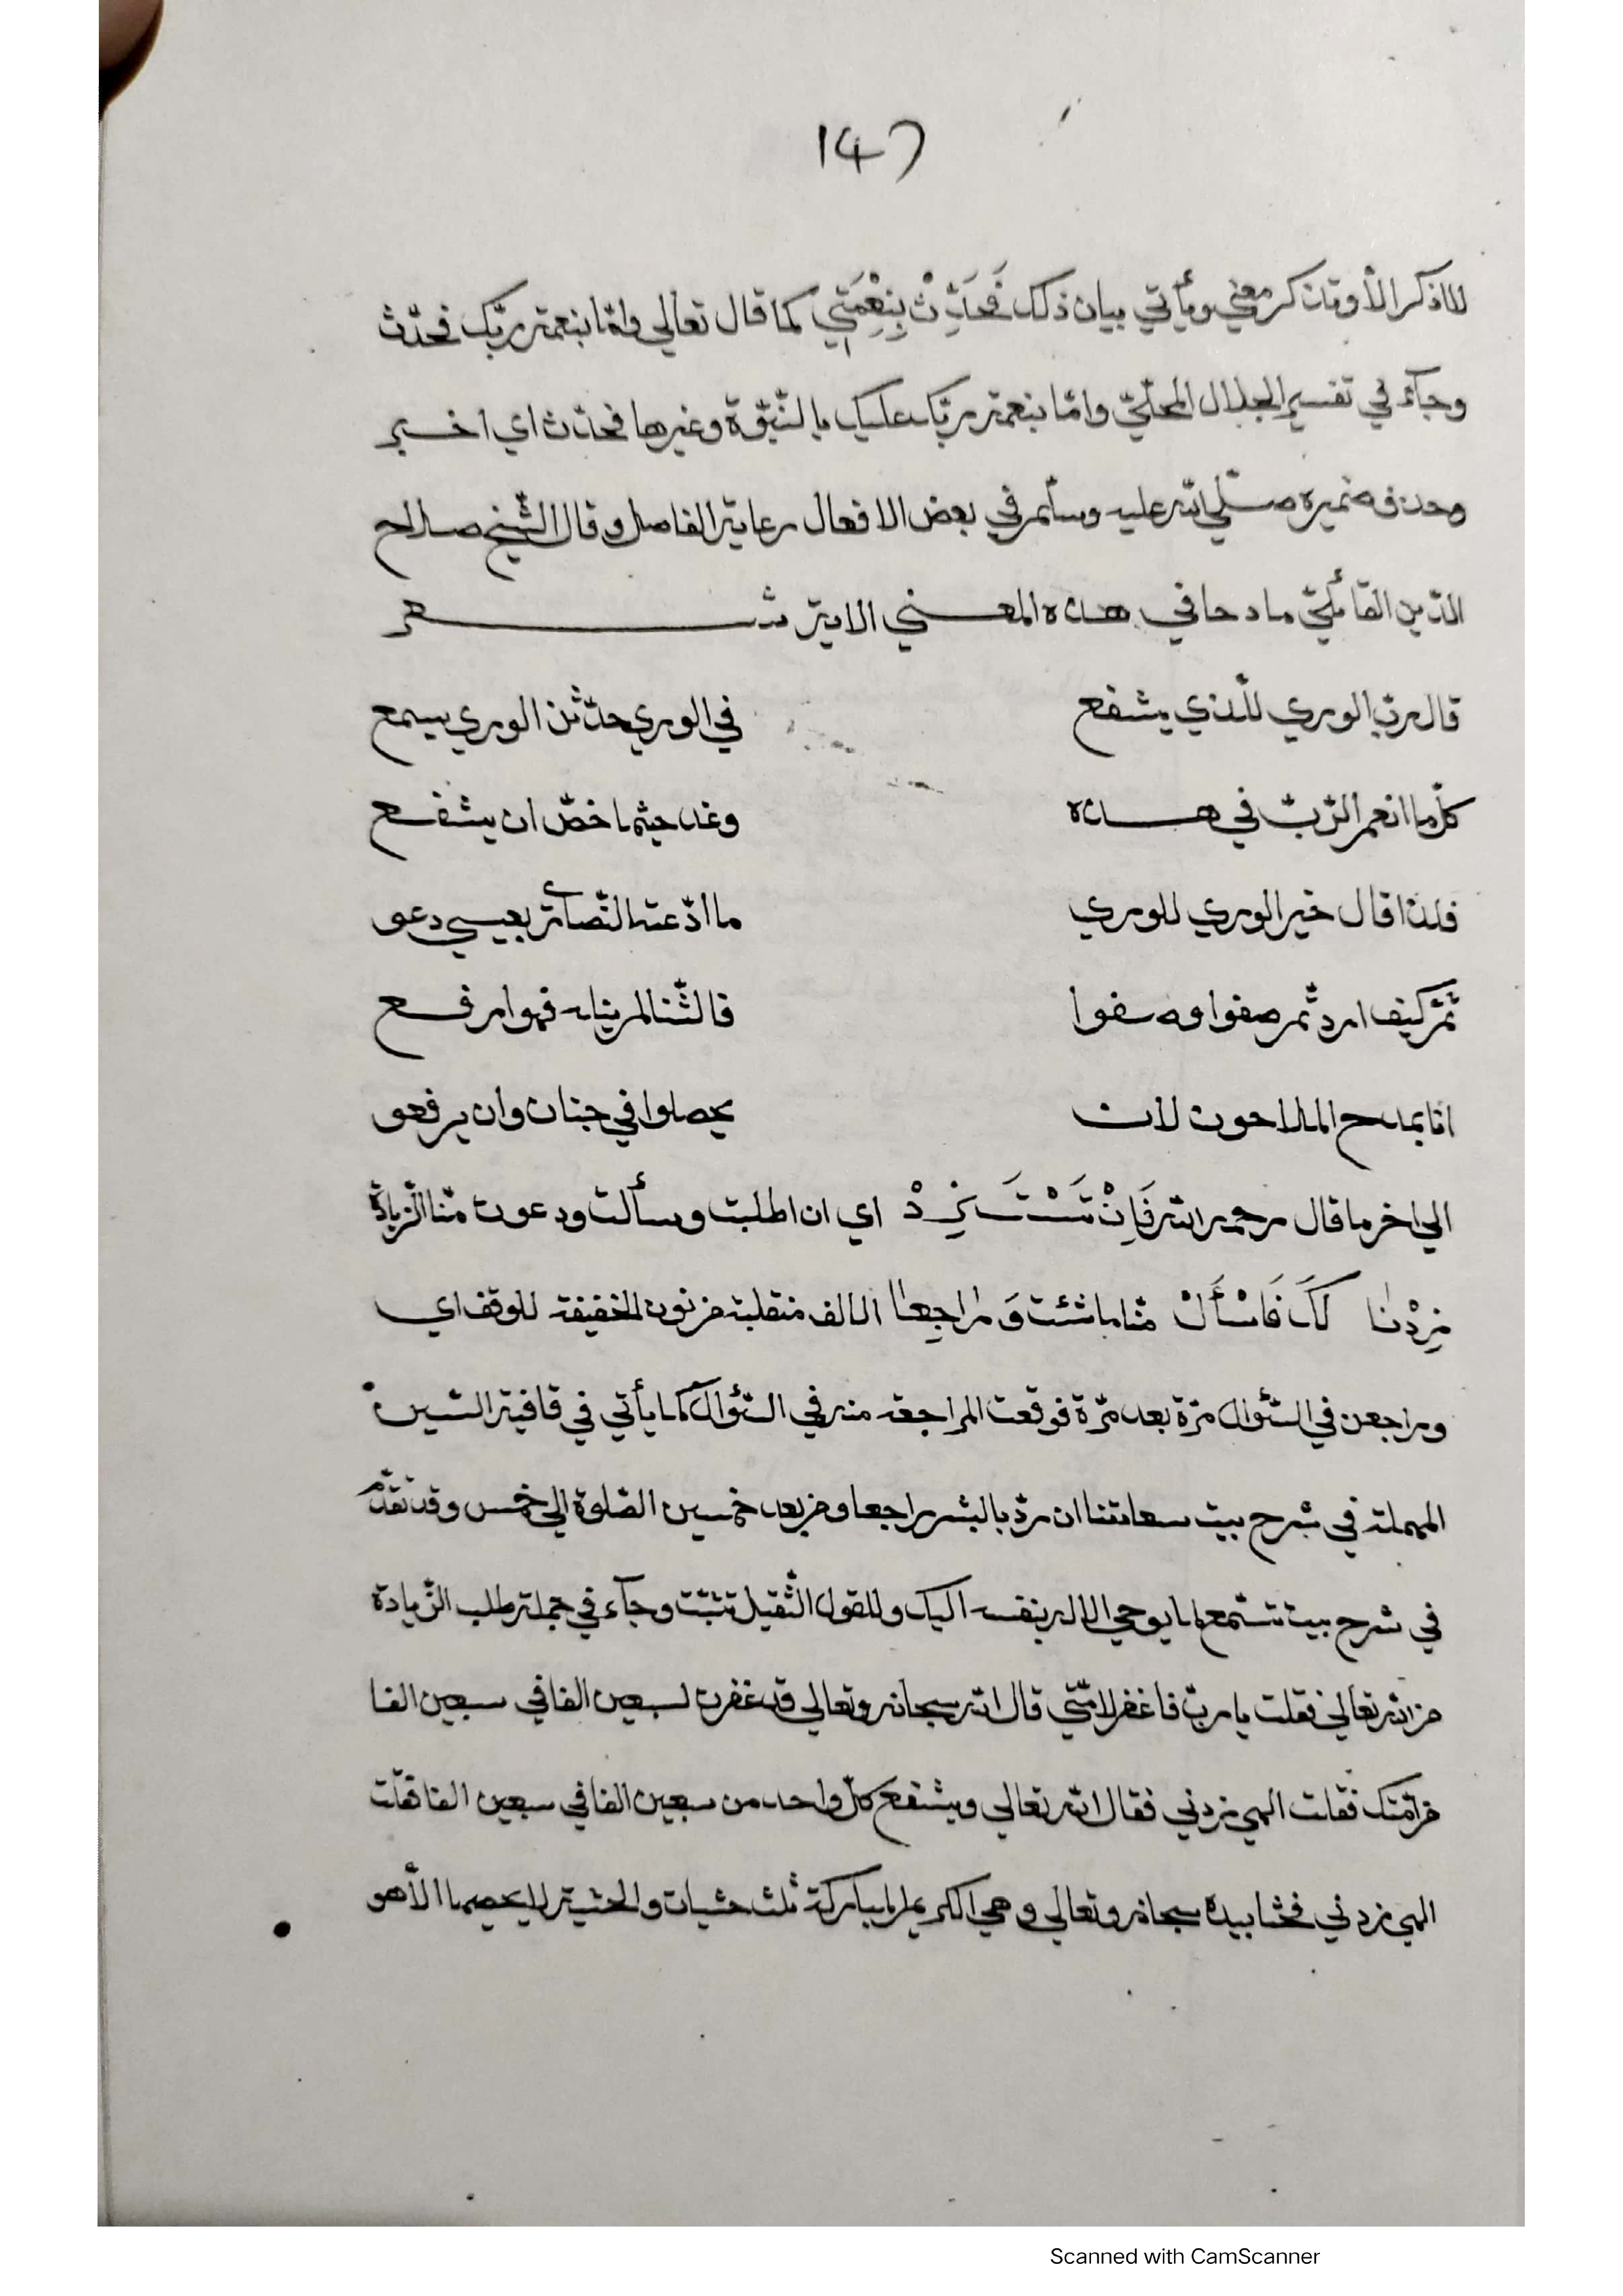 147
لااذكر الأوتذكر معي ويأتي بيان ذلك فَحَدِّثْ بِنِعْمَتِي كما قال تعالى وامّا بنعمة ربّك فحدّث
وجآء في تفسير الجلال المحلّيّ وامّا بنعمة ربّك عليك بالنّبوّة وغيرها فحدّث اي اخبر
وحذف ضميره صلّي الله عليه وسلّم في بعض الافعال رعاية الفاصل وقال الشّيخ صلاح
الدّين القآئليّ مادحا في هذه المعني الاية شعر
قال ربّ الوري للّذي يشفع
في الوري حدّثن الوري يسمع
كلّما انعم الرّبّ في هذه
وغد حيثما خصّ ان يشفع
فلذا قال خير الوري للوري
ما ادّعته النّصآرة بعيسي دعو
ثمّ كيف اردتّم صفوا وصفوا
فالثّنا لم ينله فهو ارفع
انا يمدح المادحون لان
يحصلوا في جنان وان يرفعو
الي اخر ما قال رحمه الله فَاِنْ تَسْتَزِدْ اي ان اطلبت وسألت ودعوت منّا الزّيادة
زِدْنا لَكَ فَاسْأَلْ منّا ما شئت وَراجِعا الالف منقلبة من نون الخفيفة للوقف اي
وراجعن في السّؤال مرّة بعد مرّة فوقعت المراجعة منه في السّؤال كما يأتي في قافية السّين
المهملة في شرح بيت سعادتنا ان ردّ بالبشر راجعا ومن بعد خمسين الصّلوة الي خمس وقد تقدّم
في شرح بيت تستمع لما يوحي الاله بنفسه اليك وللقول الثّقيل تثبّت وجآء في جملة طلب الزّيادة
من الله تعالي فقلت يا ربّ فاغفر لامّتي قال الله سبحانه وتعالي قد غفرت لسبعين الفا في سبعين الفا
من امّتك فقلت الهي زدني فقال الله تعالي ويشفع كلّ واحد من سبعين الفا في سبعين الفا فقلت
الهي زدني فحثا بيده سبحانه وتعالي وهي الكريمة المباركة ثلث حثيات والحثية لا يحصيها الأهو
Scanned with CamScanner